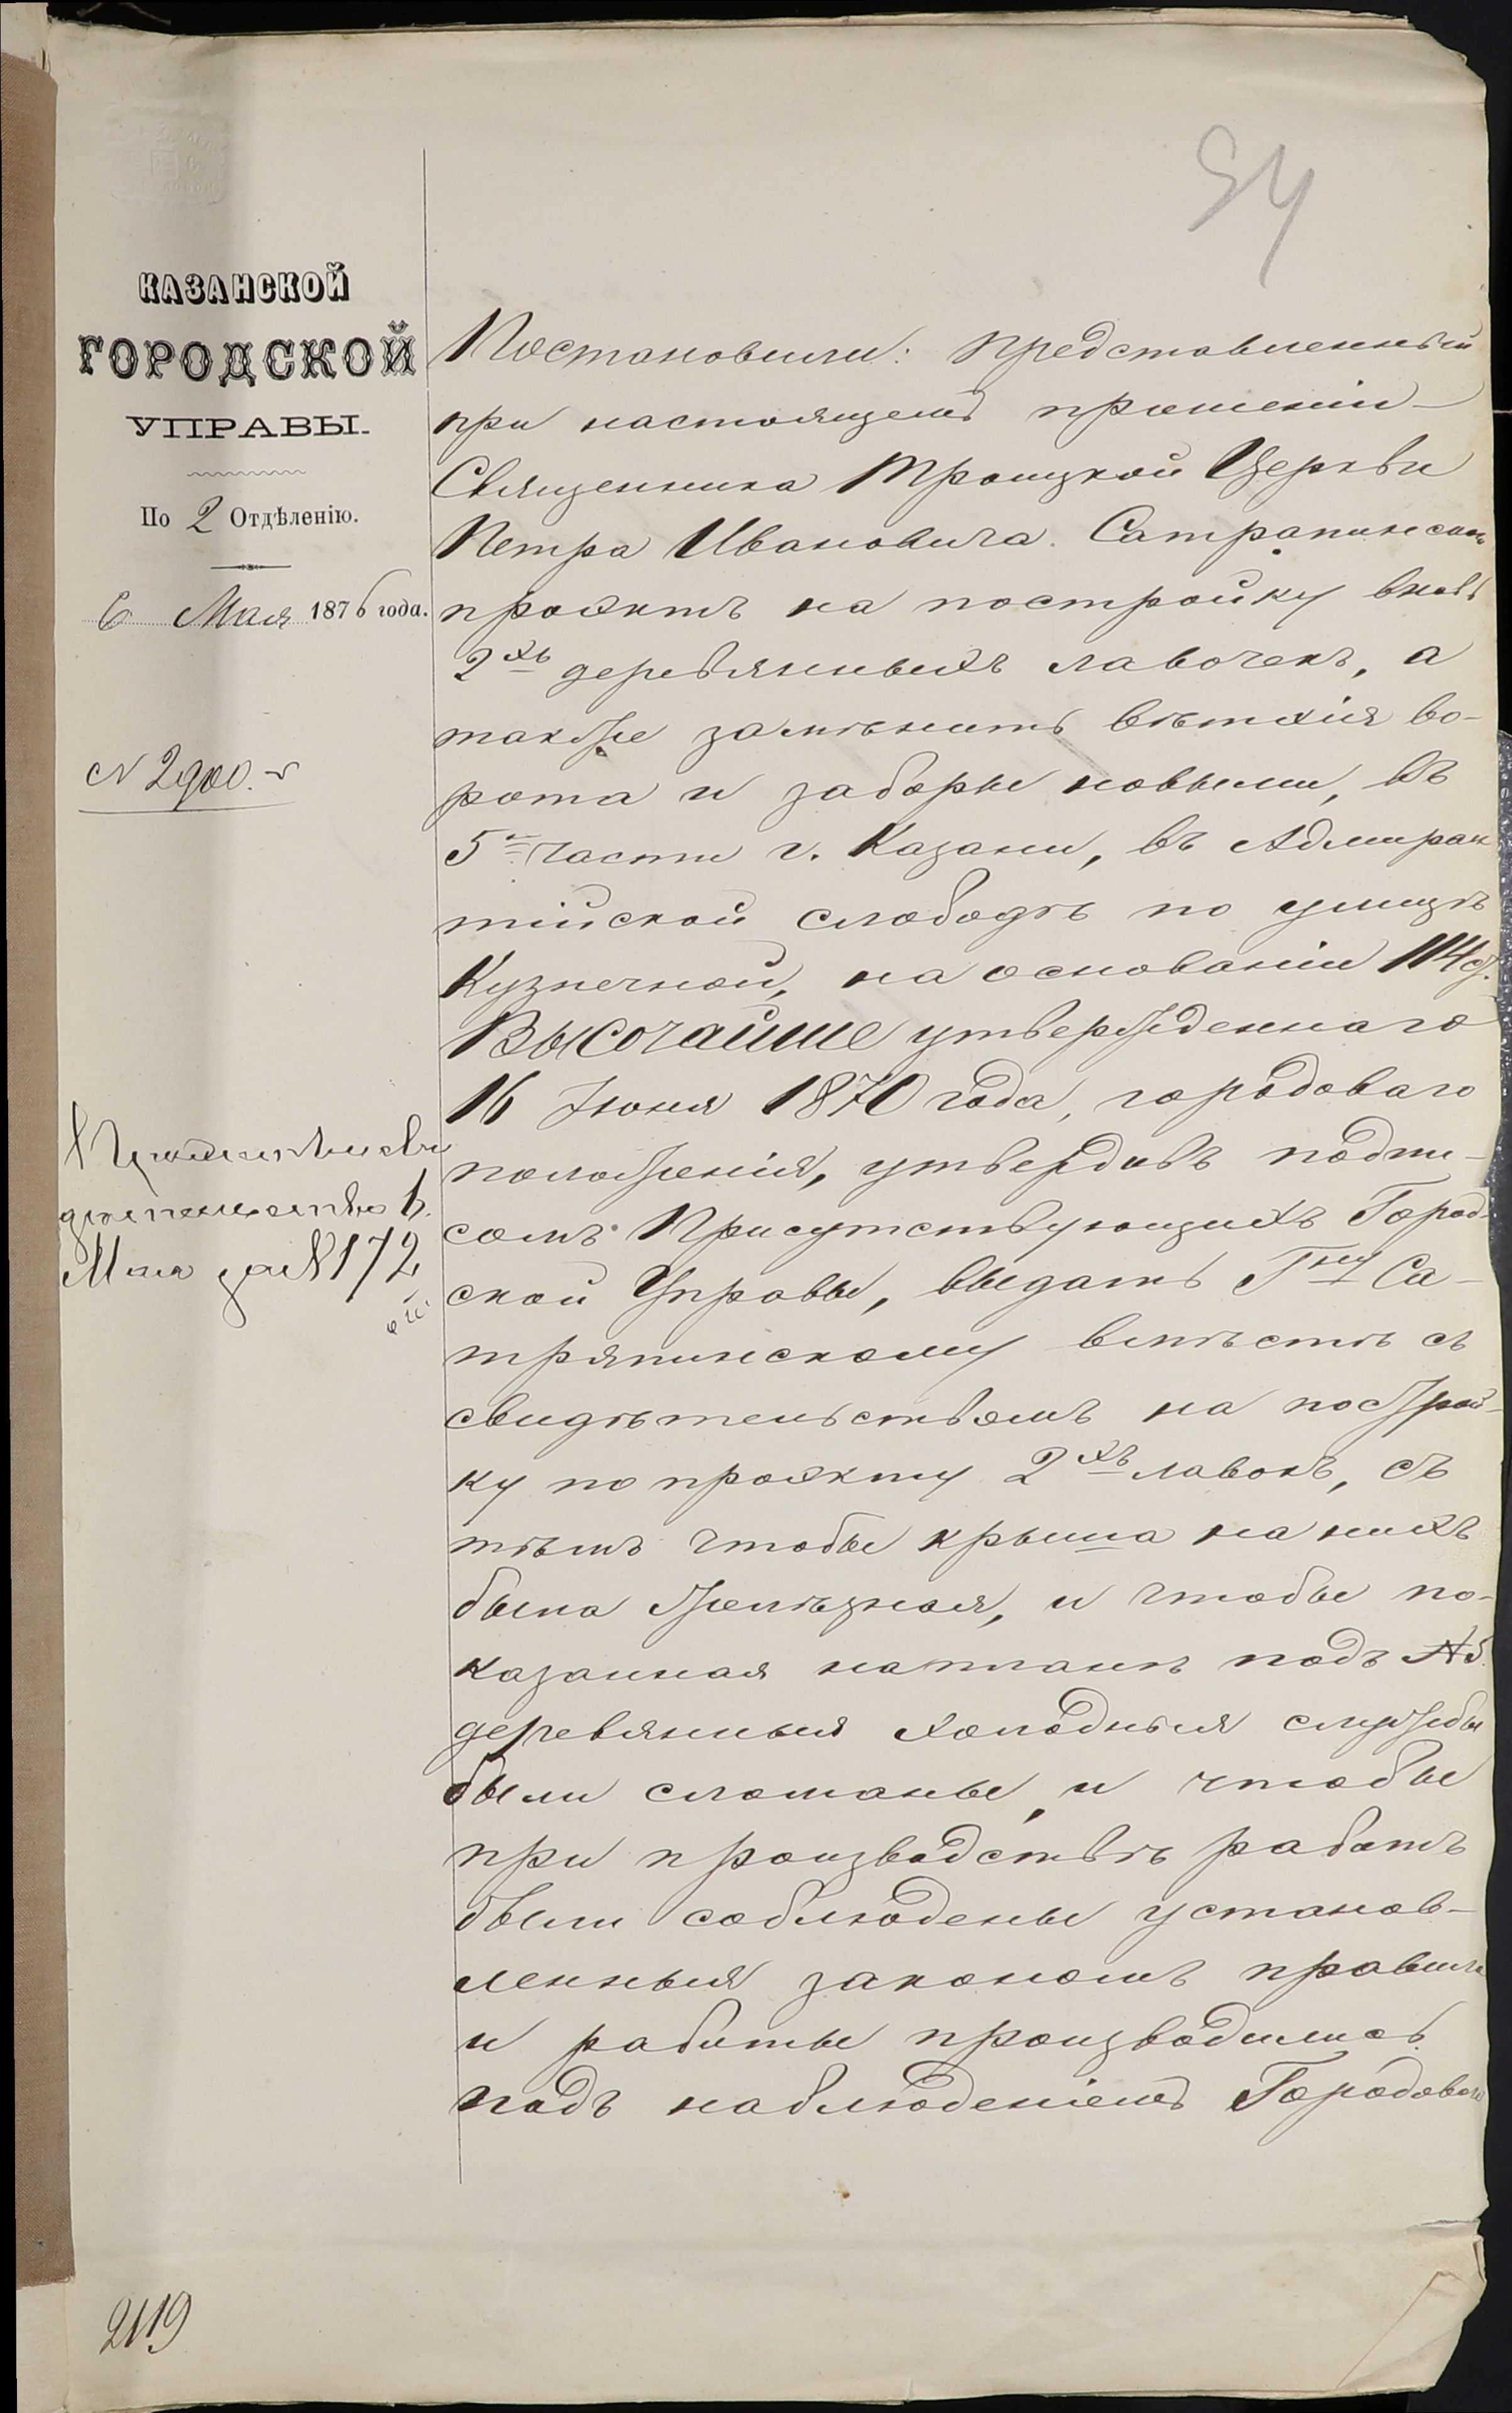 94
КАЗАНСКОЙ
ГОРОДСКОЙ
УПРАВЫ.
По 2 Отдѣленію.
6 Мая 1876 года.
№ 2900.
Мая за № 172
2119
Постановили: представленный
при настоящемъ прошеніи
Священника Троицкой Церкви
Петра Ивановича Сатрапинскаго
проэктъ на постройку вновь
2хъ деревянныхъ лавочекъ, а
также замѣнить вѣтхія во-
рота и заборы новыми, въ
5й части г. Казани, въ Адмирал
тійской слободѣ по улицѣ
Кузнечной, на основаніи 114 ст.
Высочайше утвержденнаго
16 Іюня 1870 года, городоваго
положенія, утвердивъ подпи-
сомъ Присутствующихъ Город-
ской Управы, выдать Гну Са-
тряпинскому вмѣстѣ съ
свидѣтельствомъ на построй-
ку по проэкту 2хъ лавокъ, съ
тѣмъ чтобы крыша на нихъ
была желѣзная, и чтобы по-
казанная на планѣ подъ
деревянныя холодныя службы
были сломаны, и чтобы
при производствѣ работъ
были соблюдены установ-
ленныя закономъ правила
и работы производились
подъ наблюденіемъ Городоваго